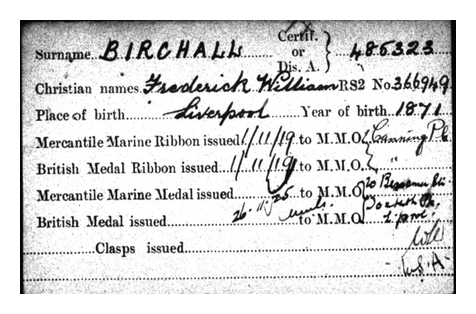 Surname. BIRCHALL Certif. or Dis. A. 485323
Christian names. Frederick William RS2 No. 366949
Place of birth. Liverpool Year of birth. 1871
Mercantile Marine Ribbon issued 1/11/19 to M.M.O. Canning Pl.
British Medal Ribbon issued. 1/11/19 to M.M.O. "
Mercantile Marine Medal issued. to M.M.O. 20
British Medal issued 26.11.25 to M.M.O. L'pool.
Clasps issued